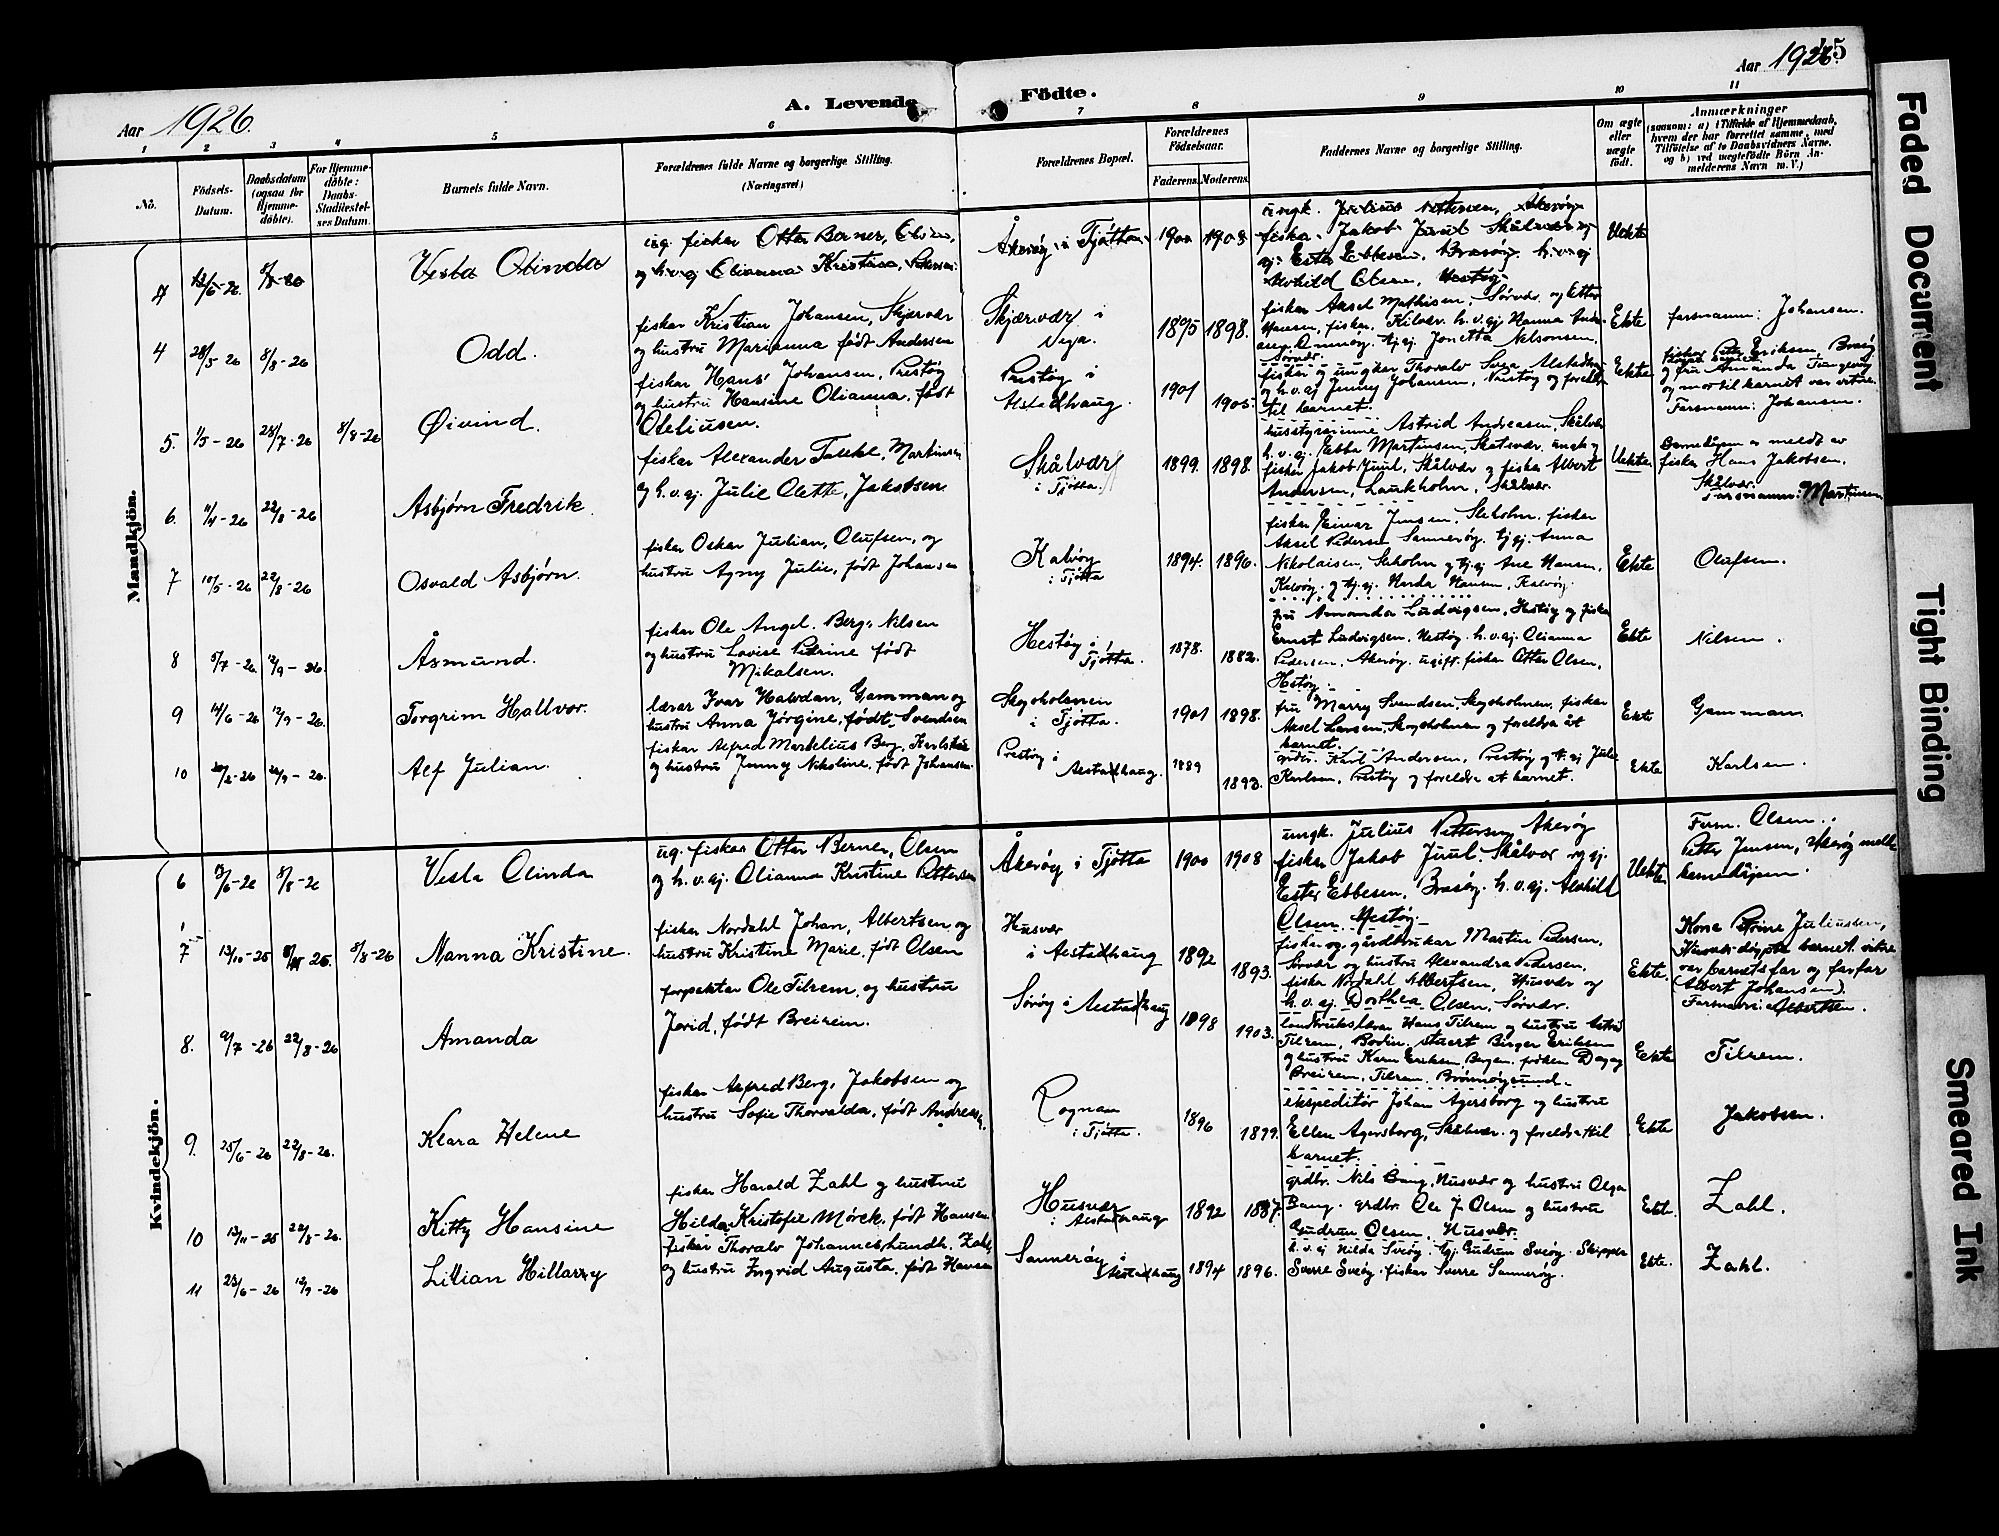 Aar 1926.
A. Levende Födte.
Aar 1926.
15
1 2 3 4 5 6 7 8 9 10 11
No.
Födsels-
Datum.
Daabsdatum
(ogsaa for
Hjemme-
döbte).
For Hjemme-
döbte:
Daabs-
Stadfæstel-
ses Datum.
Barnets fulde Navn.
Forældrenes fulde Navne og borgerlige Stilling.
(Næringsvei)
Forældrenes Bopæl.
Forældrenes
Födselsaar.
Faderens. Moderens.
Faddernes Navne og borgerlige Stilling.
Om ægte
eller
uægte
födt.
Anmærkninger
(saasom: a) i Tilfælde af Hjemmedaab,
hvem der har forrettet samme, med
Tilföielse af to Daabsvidners Navne,
og b) ved uægtefödte Börn An-
melderens Navn m. V.)
Mandkjön.
Vesla Olinda
ug. fiskar Otter Berner, Olsen,
og h.v.gj Olianna Kristine, Pettersen
Åkerøy i Tjøtta
1900 1908
ungk. Julius Pettersen, Åkerøy
fiskar Jakob Juul Skålvær og
gj. Ester Ebbesen, Brasøy. h.v.gj
Alvhild Olsen, Hestøy.
Uekte
4 28/5 26 8/8-26
Odd.
fiskar Kristian Johansen, Skjærvær
og hustru Marianna født Andersen
Skjærvær i
Vega.
1895 1898.
fiskar Aksel Mathisen, Sørvær og Otter
Hansen, fiskar, Kilvær. h.v.gj Hanna Andr-
gj. Jonetta Nilsonsen,
Sørvær.
Ekte
farsnamn: Johansen.
5. 1/5-26 28/7-26 8/8-26
Øivind.
fiskar Hans Johansen, Prestøy
og hustru Hansine Olianna, født
Oteliusen.
Prestøy i
Alstadhaug.
1901 1905.
fiskar og ungkar Thoralv Svea, Alstadhaug
og h.v.gj Jenny Johansen, Prestøy og foreldre
til barnet.
Ekte
Eriksen, Brasøy
og fru Amanda
og mor til barnet var vitne.
Farsnamn: Johansen.
6. 11/4-26 22/8-26
Asbjørn Fredrik.
fiskar Alexander Martinsen
og h.v.gj. Julie Olette, Jakobsen
Skålvær
i Tjøtta.
1899. 1898.
Astrid Andreasen, Skålvær
h.v.gj. Ebba Martinsen, Skålvær, ungk og
fiskar Jakob Juul, Skålvær og fiskar Albert
Andersen, Laukholm, Skålvær.
Uekte
er meldt av
fiskar Hans Jakobsen.
Skålvær.
Farsnamn: Martinsen
7 10/5-26 22/8-26
Osvald Asbjørn.
fiskar Oskar Julian, Olufsen, og
hustru Agny Julie, født Johansen
Kalvøy
i Tjøtta
1894. 1896.
fiskar Einar Jensen, Sleholm. fiskar
Aksel Pedersen Sannerøy. tj.gj. Anna
Nikolaisen, Sleholm og tj.gj Ane Hansen,
Kalvøy. og tj.gj. Harda Hansen, Kalvøy.
Ekte
Olufsen.
8 5/7-26 12/9-26.
Åsmund.
fiskar Ole Angel. Berg, Nilsen
og hustru Lovise Petrine født
Mikalsen.
Hestøy i
Tjøtta.
1878. 1882.
fru Amanda Ludvigsen, Hestøy og fiskar
Ernst Ludvigsen, Hestøy. h.v.gj Olianna
Pedersen, Åkerøy. ugift. fiskar Otter Olsen,
Hestøy.
Ekte
Nilsen.
9 14/6-26 12/9-26.
Torgrim Hallvor.
lærar Ivar Halvdan, Gamman og
hustru Anna Jørgine, født Svendsen
Skogsholmen
i Tjøtta.
1901 1898.
fru Marry Svendsen, Skogsholmen, fiskar
Aksel Larsen, Skogsholmen og foreldre åt
barnet.
Ekte
Gamman
10 20/2-26 26/9-26.
Alf Julian.
fiskar Alfred Mardelius Berg, Karlsen
og hustru Jenny Nikoline, født Johansen
Prestøy i
Alstadhaug.
1889 1893.
grdbr. Karl Andersen, Prestøy og h.gj Julie
Karlsen, Prestøy og foreldre åt barnet.
Ekte
Karlsen.
Kvindekjön.
6 8/8-26
Vesla Olinda
ug. fiskar Otter Berner, Olsen
og h.v.gj. Olianna Kristine Pettersen
Åkerøy i Tjøtta
1900 1908
ungk. Julius Pettersen Åkerøy
fiskar Jakob Juul. Skålvær og gj.
Ester Ebbesen, Brasøy. h.v.gj. Alvhild
Olsen, Hestøy.
Uekte
Farsn. Olsen.
Petter Jensen, Åkerøy melde
7 13/10-25 25. 8/8-26
Nanna Kristine.
fiskar Nordahl Johan, Albertsen og
hustru Kristine Marie, født Olsen
Husvær
i Alstadhaug
1892 1893.
fiskar og gårdbrukar Martin Pedersen,
Sørvær og hustru Alexandra Pedersen.
fiskar Nordahl Albertsen, Husvær og
h.v.gj. Dorthea Olsen, Sørvær.
Ekte.
Kone Petrine Juliussen,
Husvær døypte barnet. vitne
var barnets far og farfar
(Albert Johansen).
Farsnavn: Albertsen.
8. 9/7-26 22/8-26
Amanda
forpaktar Ole Tilrem, og hustru
Jorid, født Breirem.
Sørøy i Alstadhaug
1898 1903.
landbrukslærar Hans Tilrem og hustru Astrid
Tilrem, Bodin. stuert Birger Eriksen
og hustru Karn Eriksen Bergen. frøken Dagny
Breirem, Tilrem. Brønnøysund.
Ekte
Tilrem.
9. 25/6-26 22/8-26.
Klara Helene
fiskar Alfred Berg, Jakobsen og
hustru Sofie Thorvalda, født Andreassen.
Rognan
i Tjøtta.
1896 1899.
ekspeditør Johan Agersborg og hustru
Ellen Agersborg, Skålvær. og foreldre til
barnet.
Ekte
Jakobsen.
10 13/11-25 22/8-26.
Kitty Hansine
fiskar Harald Zahl og hustru
Hilda Kristofie Mörck, født Hansen
Husvær
i Alstadhaug
1892 1887.
grdbr. Nils Bang, Husvær og hustru Olga
Bang. grdbr. Ole J. Olsen og hustru
Gudrun Olsen, Husvær.
Ekte.
Zahl.
11 23/6-26 12/9-26
Lilian Hillarry
fiskar Thoralv Johannes Lundh, Zahl,
og hustru Ingrid Augusta, født Hansen
Sannerøy i
Alstadhaug
1894 1896.
h.v.gj Hilda Sveøy. tj.gj. Gudrun Sveøy. Skipper
Sverre Sveøy. fiskar Sverre Sannerøy.
Ekte.
Zahl.
Faded Document
Tight Binding
Smeared Ink